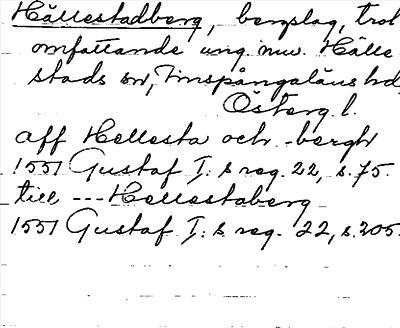 Hällestadberg, bergslag, trol
omfattande ung. nuv. Hälle-
stads sn, Finspångaläns hd,
Österg. l.
aff Hellesta och -bergh
1551 Gustaf I: s reg. 22, s. 75.
till --- Hellestaberg
1551 Gustaf I: s reg. 22, s. 205.